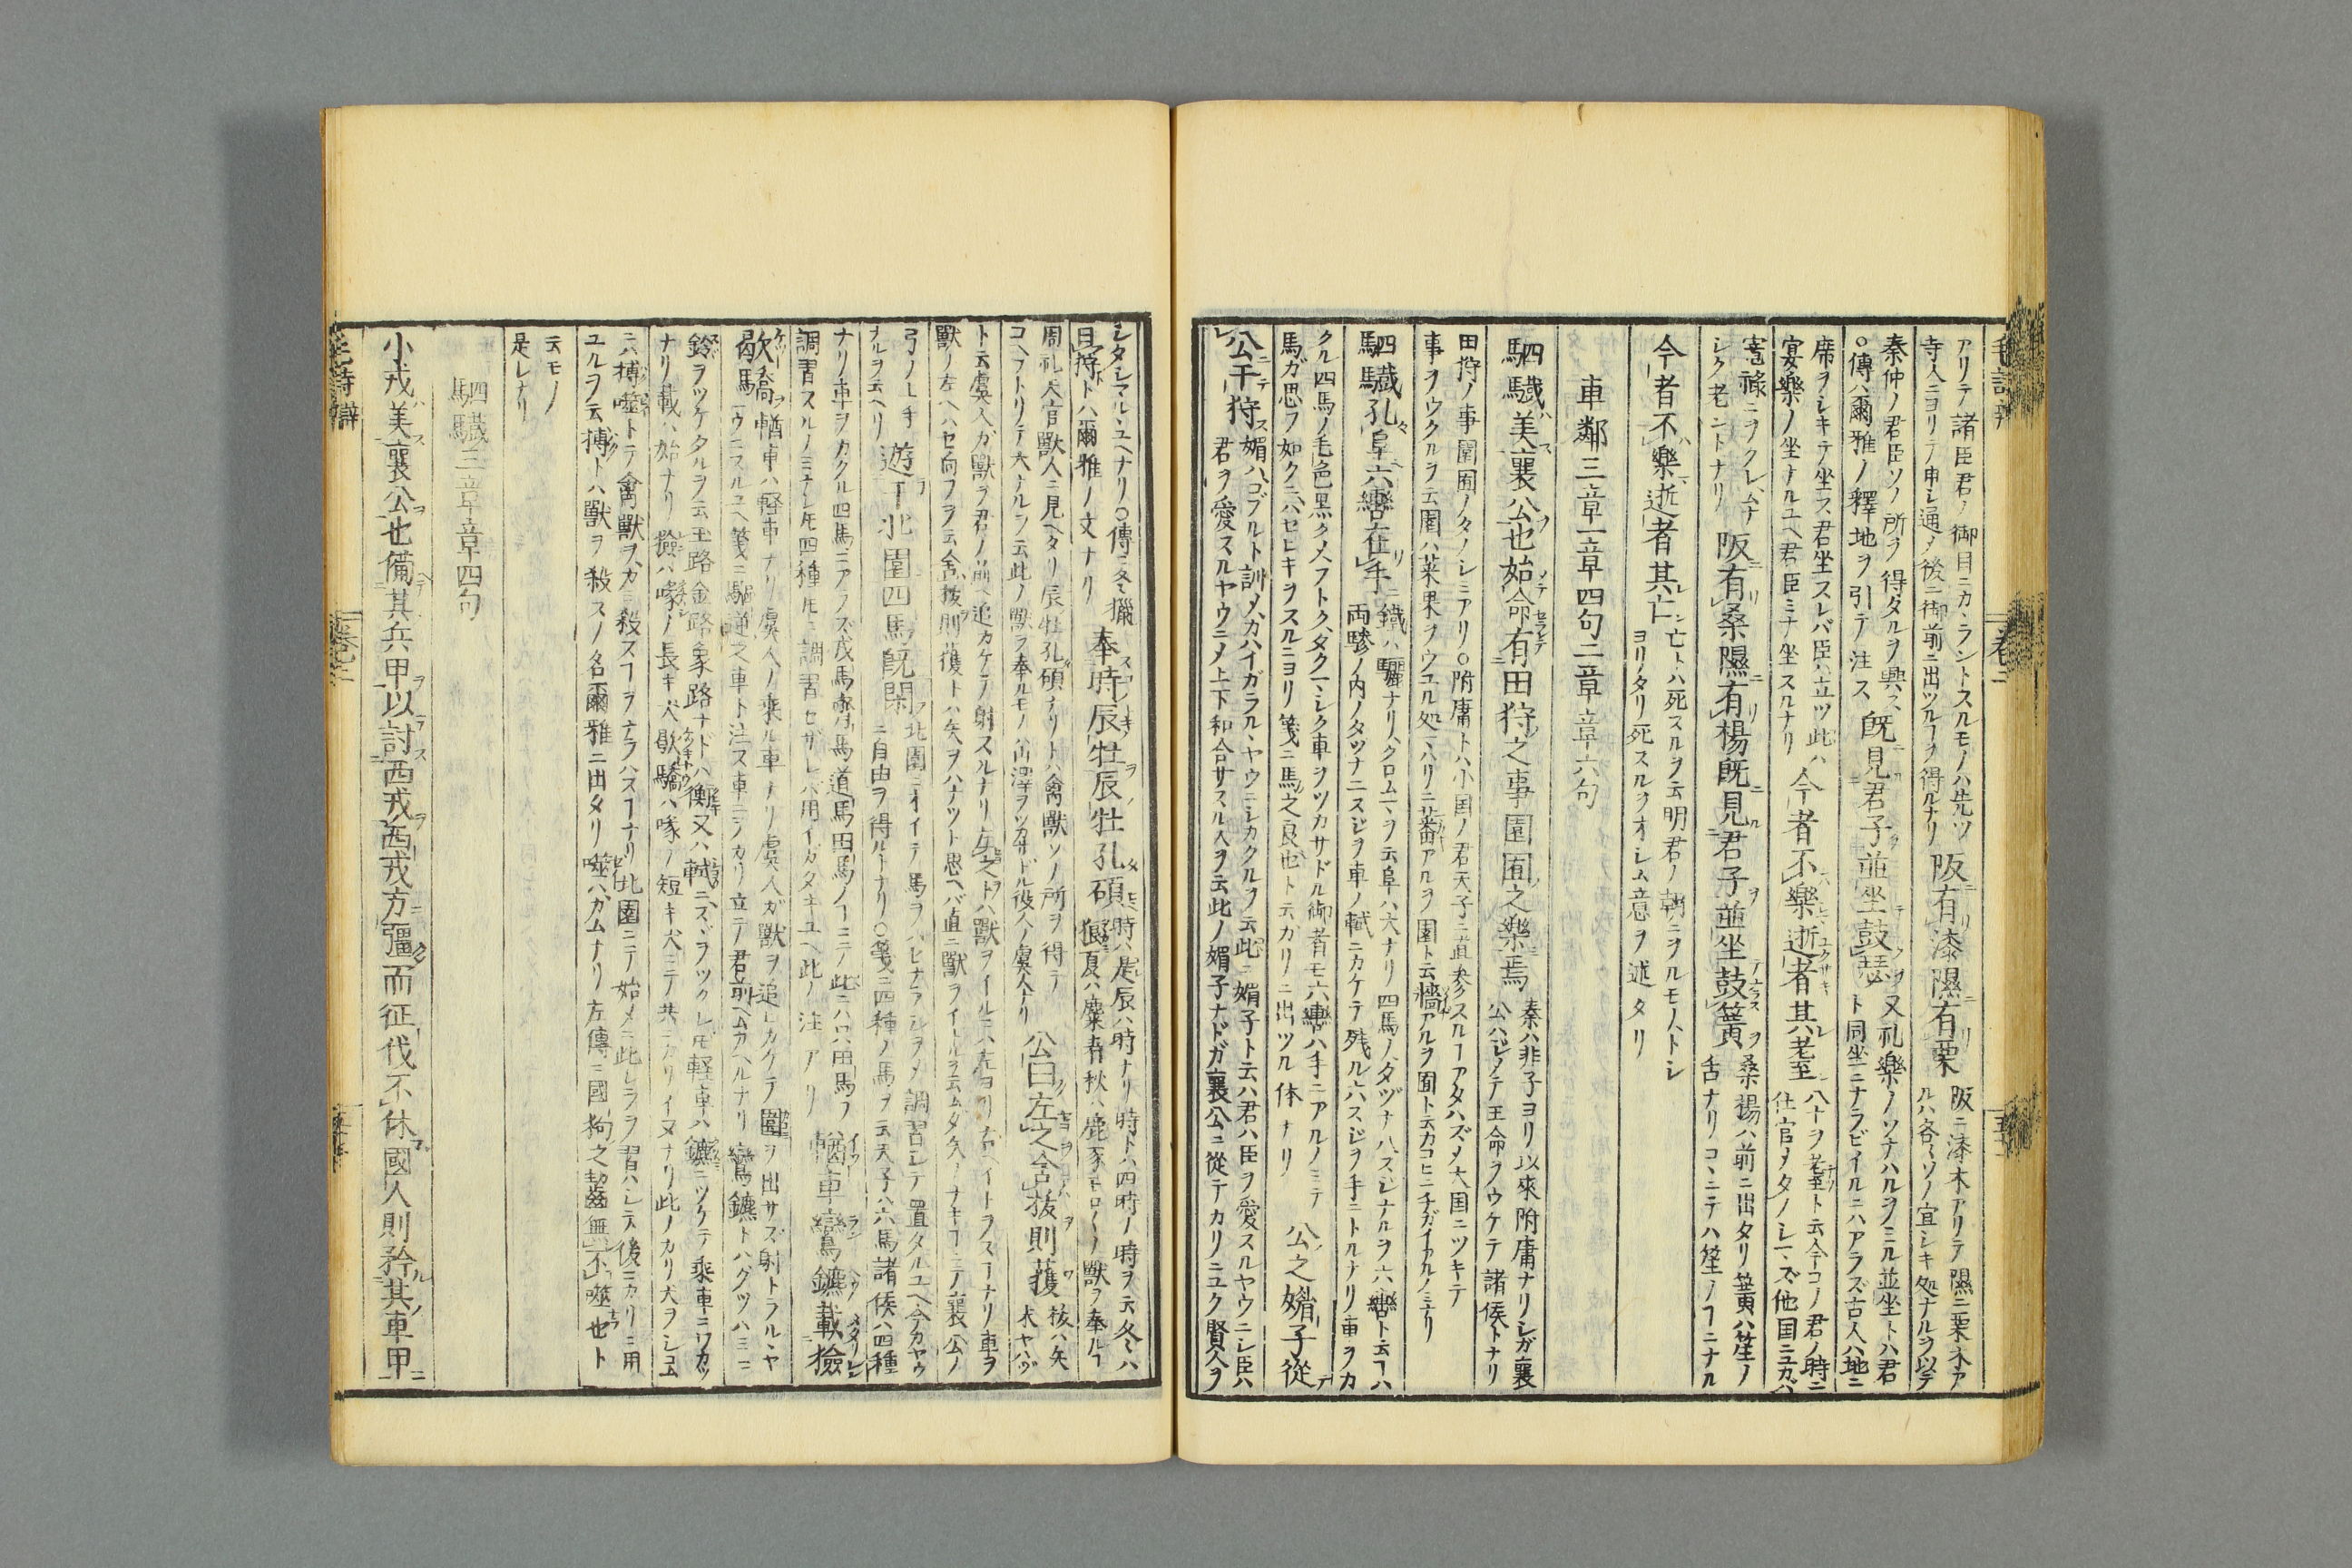 アリテ諸臣君ノ御目ニカヽラントスルモノハ先ツ
寺人ニヨリテ申レ通〆後ニ御前ニ出ツルヿヲ得ルナリ
阪有漆隰有栗
阪ニ漆木アリテ隰ニ栗木ア
ルハ各々ソノ宜シキ処ナルヲ以テ
秦仲ノ君臣ソノ所ヲ得タルヲ興ス
○傳ハ爾雅ノ釋地ヲ引テ注ス
既見君子並坐鼓瑟
又礼樂ノソナハルヲミル並坐トハ君
ト同坐ニナラビイルニハアラズ古人ハ地ニ
席ヲシキテ坐ス君坐スレバ臣ハ立ツ此ハ
宴樂ノ坐ナルユヘ君臣ミナ坐スルナリ
今者不樂逝者其耋
八十ヲ耋ト云今コノ君ノ時ニ
仕官〆タノシマズ他国ニユカバ
寵祿ニヲクレムナ
シク老ントナリ
阪有桑隰有楊既見君子並坐鼓簧
桑楊ハ前ニ出タリ簧ハ笙ノ
舌ナリコヽニテハ笙ノヿニナル
今者不樂逝者其亡
亡トハ死スルヲ云明君ノ朝ニヲルモノトシ
ヨリタリ死スルヲオシム意ヲ述タリ
車鄰三章一章四句二章章六句
駟驖美襄公也始命有田狩之事園囿之樂焉
秦ハ非子ヨリ以來附庸ナリシガ襄
公ハジメテ王命ヲウケテ諸侯トナリ
田狩ノ事園囿ノタノシミアリ○附庸トハ小国ノ君天子ニ直参スルヿアタハズ〆大国ニツキテ
事ヲウクルヲ云園ハ菜果ヲウユル処マハリニ藩アルヲ園ト云牆アルヲ囿ト云カコヒニチガイアルノミナリ
駟驖孔阜六轡在手
鐵ハ驪ナリクロムマヲ云阜ハ大ナリ四馬ノタヅナ八スジナルヲ六轡ト云ヿハ
両驂ノ内ノタツナ二スジヲ車ノ軾ニカケテ残ル六スジヲ手ニトルナリ車ヲカ
クル四馬ノ毛色黒クメフトクタクマシク車ヲツカサドル御者モ六轡ハ手ニアルノミニテ
馬ガ思フ如クニハセヒキヲスルニヨリ箋ニ馬之良也ト云カリニ出ツル体ナリ
公之媚子從
公于狩
媚ハコブルト訓メハカハイガラルヽヤウニシカクルヲ云此ニ媚子ト云ハ君ハ臣ヲ愛スルヤウニシ臣ハ
君ヲ愛スルヤウニ〆上下和合サスル人ヲ云此ノ媚子ナドガ襄公ニ從テカリニユク賢人ヲ
シタシマルヽユヘナリ○傳ニ冬獵
曰狩トハ爾雅ノ文ナリ
奉時辰牡辰牡孔碩
時ハ是辰ハ時ナリ時トハ四時ノ時ヲ云冬ハ
狼夏ハ麋春秋ハ鹿豕モロ〱ノ獣ヲ奉ルヿ
周礼天官獸人ニ見ヘタリ辰牡孔碩ナリトハ禽獸ソノ所ヲ得テ
コヘフトリテ大ナルヲ云此ノ獸ヲ奉ルモノハ山澤ヲツカサドル役人ノ虞人ナリ
公曰左之舍拔則獲
拔ハ矢
末ヤハヅ
ト云虞人ガ獸ヲ君ノ前ヘ追カケテ射スルナリ左之トハ獸ヲイルニハ左ヨリ右ヘイトヲスヿナリ車ヲ
獸ノ左ヘハセ向フヲ云舍拔則獲トハ矢ヲハナツト思ヘバ直ニ獸ヲイトルヲ云ムダ矢ノナキヿニテ襄公ノ
弓ノ上手
ナルヲ云ヘリ
遊于北園四馬既閑
北園ニオイテ馬ヲハセナラシヲ〆調習シテ置タルユヘ今カヤウ
ニ自由ヲ得ルトナリ○箋ニ四種ノ馬ヲ云天子ハ六馬諸侯ハ四種
ナリ車ヲカクル四馬ニアラズ戎馬齊馬道馬田馬ノヿニ〆此ニハ只田馬ヲ
調習スルノミナレ𪜈四種𪜈ニ調習セザレバ用イガタキユヘ此ノ注アリ
輶車鸞鑣載獫
歇驕
輶車ハ軽車ナリ虞人ノ乗ル車ナリ虞人ガ獸ヲ追ヒカケテ圍ヲ出サズ射トラルヽヤ
ウニスルユヘ箋ニ驅逆之車ト注ス車ニシカリ立テ君前ヘムカヘルナリ鸞鑣トハクツハミニ
鈴ヲツケタルヲ云玉路金路象路ナドハ衡又ハ軾ニスヾヲツクレ𪜈軽車ハ鑣ニツケテ乗車ニワカツ
ナリ載ハ始ナリ獫ハ喙ノ長キ犬歇驕ハ喙ノ短キ犬ニテ共ニカリイヌナリ此ノカリ犬ヲシコム
ニハ搏噬トテ禽獸ヲカミ殺スヿヲナラハスヿナリ北園ニテ始メニ此レラヲ習ハシテ後ニカリニ用
ユルヲ云搏トハ獸ヲ殺スノ名爾雅ニ出タリ噬ハカムナリ左傳ニ國狗之齧無不噬也ト
云モノ
是レナリ
駟驖三章章四句
小戎美襄公也備其兵甲以討西戎西戎方彊而征伐不休國人則矜其車甲